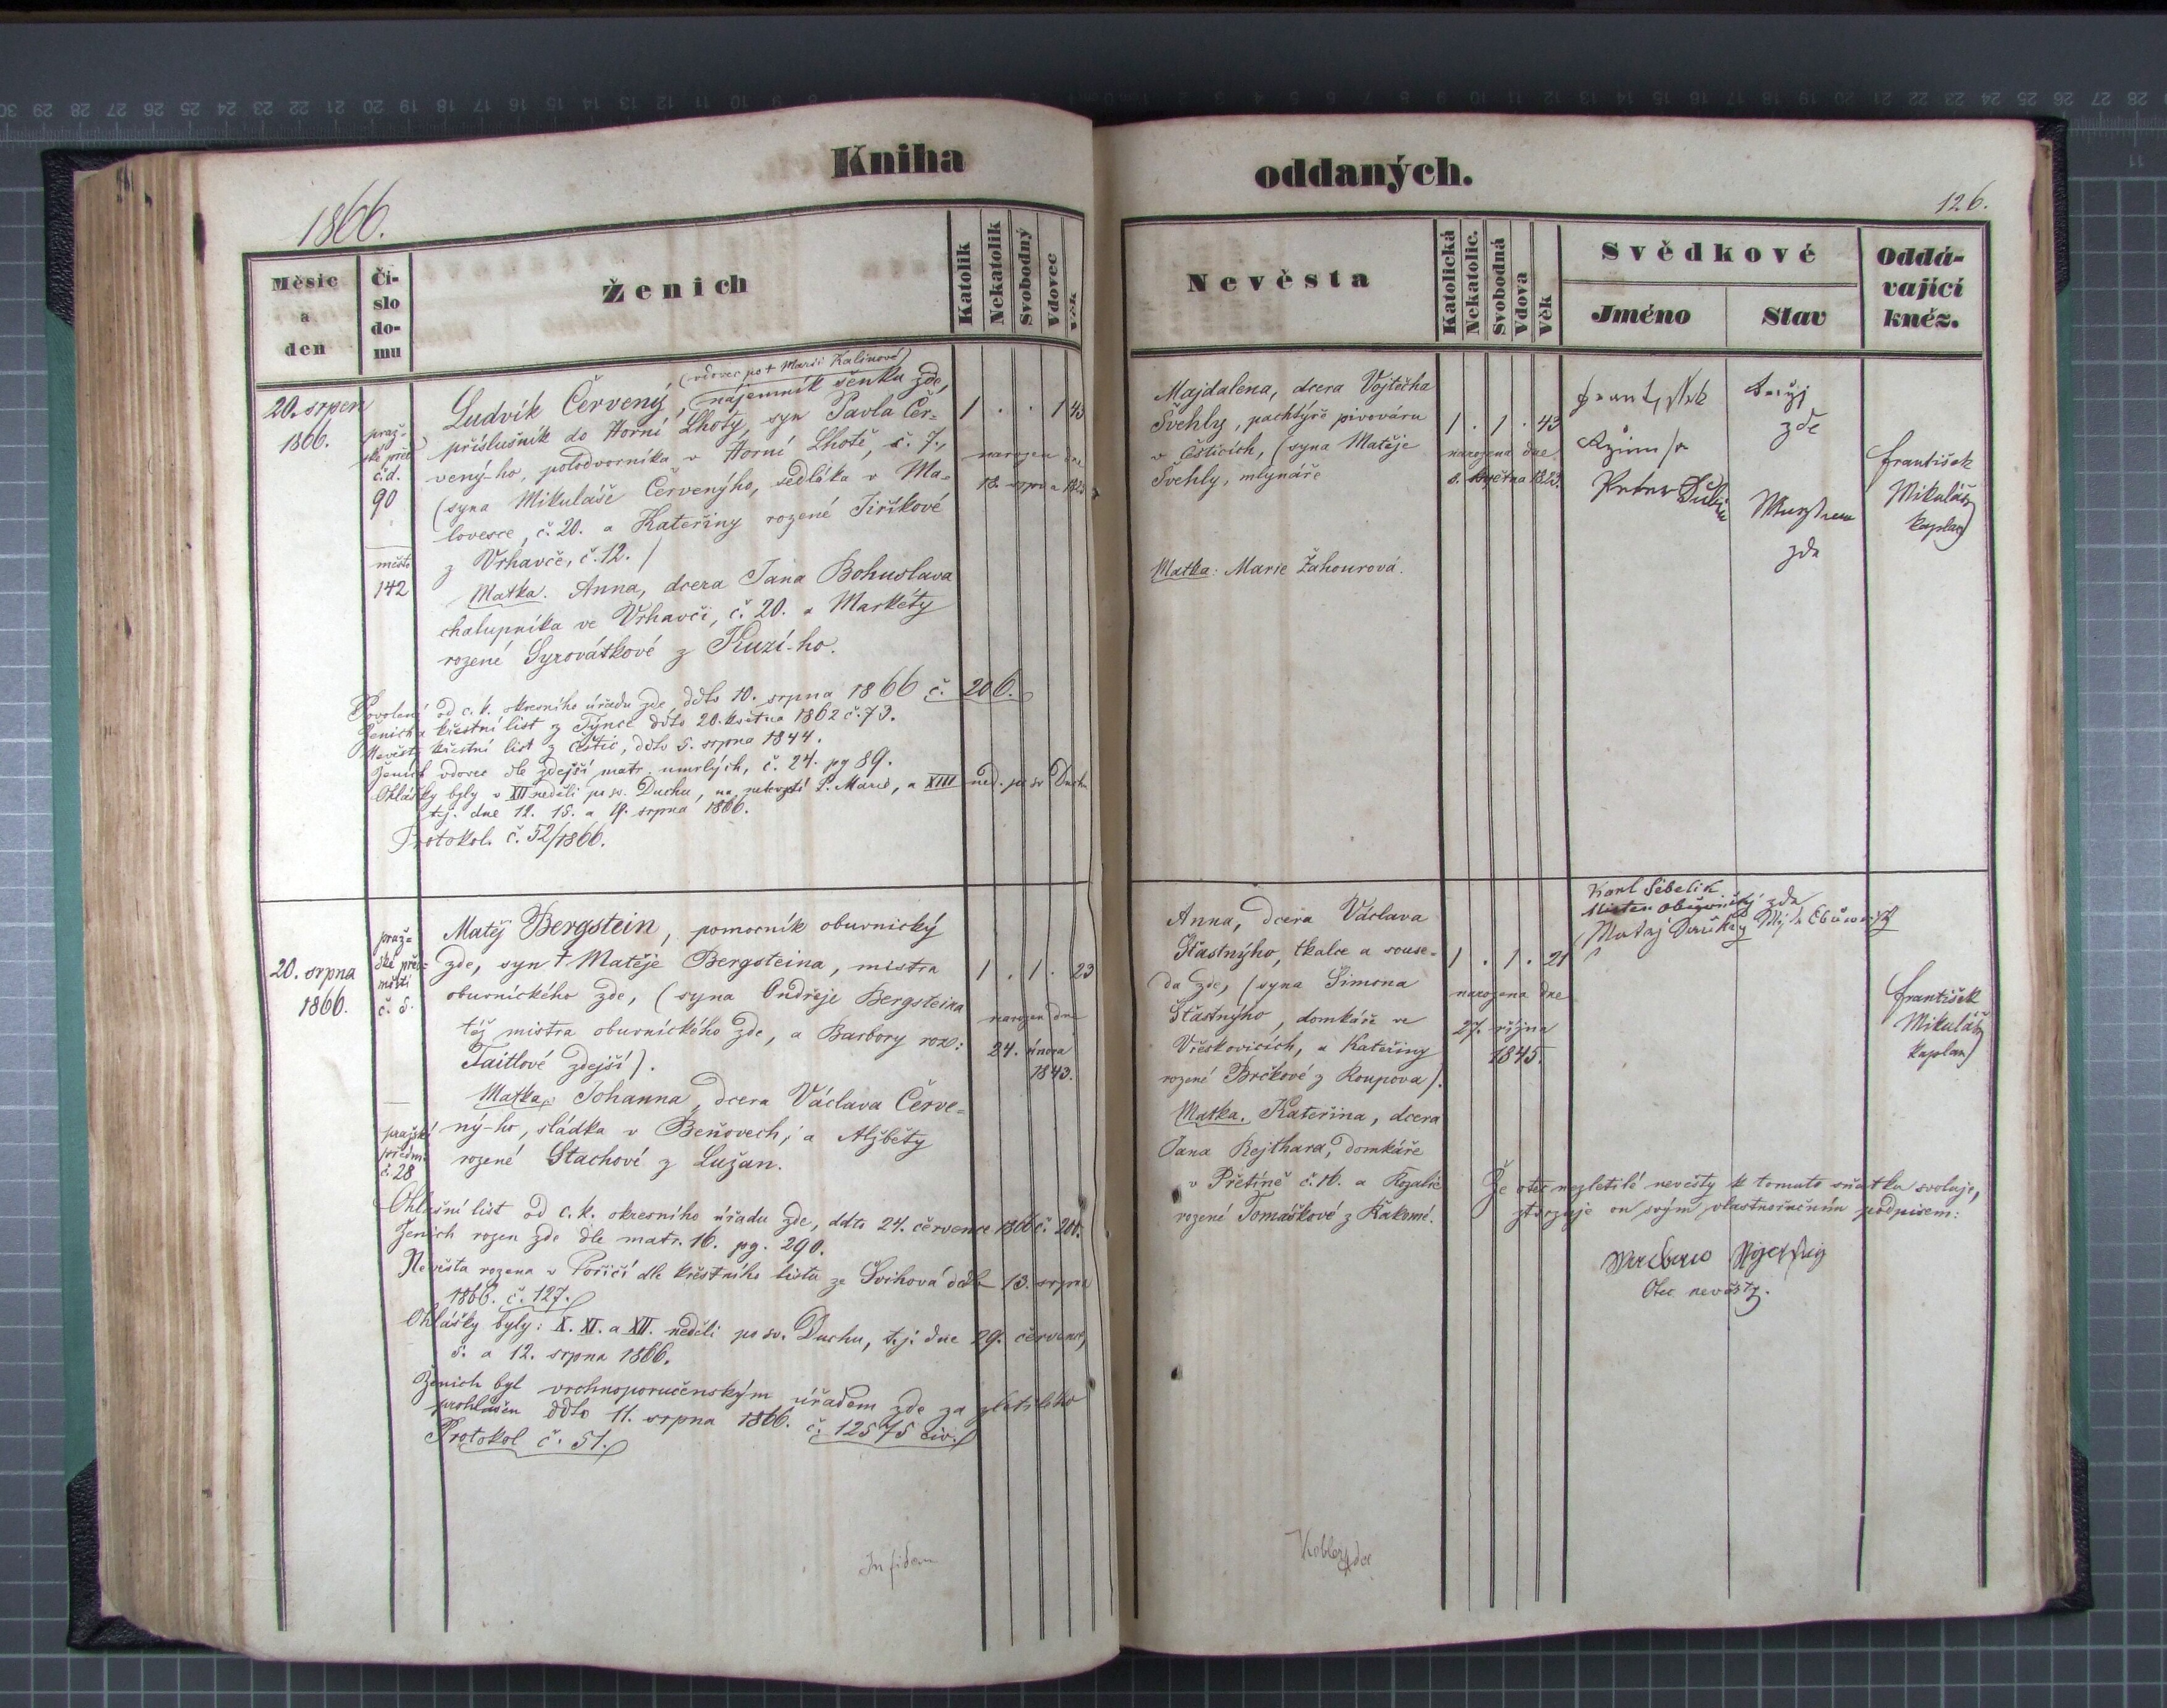 Kniha
oddaných.
1866.
126.
Měsíc
a
den
Čí-
slo
do-
mu
Ženich
Katolík
Nekatolík
Svobodný
Vdovec
Věk
Nevěsta
Katolická
Nekatolic.
Svobodná
Vdova
Věk
Svědkové
Jméno
Stav
Oddá-
vající
kněz.
20. srpen
1866.
praž-
ské před
č.d.
90
město
142
(vdovec po + Marii Kalinové)
Ludvík Červený, nájemník šenku zde,
příslušník do Horní Lhoty, syn Pavla Čer-
vený-ho, polodvorníka v Horní Lhotě, č. 7.,
(syna Mikuláše Červenýho, sedláka v Ma-
lovesce, č. 20. a Kateřiny rozené Jiříkové
z Vrhavče, č. 12.)
Matka. Anna, dcera Jana Bohuslava
chalupníka ve Vrhavči, č. 20. a Markéty
rozené Syrovátkové z Kuzí-ho.
1 . . 1 43
narozen dne
18. srpna 1823
Povolení od c. k. okresního úřadu zde, ddto 10. srpna 1866 č. 206.
Ženicha křestní list z Týnce ddto 20. května 1862 č. 73.
Nevěsty křestní list z Čéstic, ddto 5. srpna 1844.
Ženich vdovec dle zdejší matr. umrlých, č. 24. pg 89.
Ohlášky byly v XII neděli po sv. Duchu, na nebevzetí P. Marie, a XIII ned. po sv Duchu
t.j. dne 12. 15. a 19. srpna 1866.
Protokol. č. 52/1866.
Majdalena, dcera Vojtěcha
Švehly, pachtýře pivováru
v Čésticích, (syna Matěje
Švehly, mlynáře
Matka: Marie Žahourová.
1 . 1 . 43
narozena dne
8. května 1823.
zde
Peter
zde
František
Mikuláš
kaplan
20. srpna
1866.
praž-
ské před-
městí
č. 5.
pražské
předm.
č. 28
Matěj Bergstein, pomocník obuvnický
zde, syn + Matěje Bergsteina, mistra
obuvnického zde, (syna Ondřeje Bergsteina
též mistra obuvnického zde, a Barbory roz:
Taitlové zdejší).
Matka: Johanna, dcera Václava Červe-
ný-ho, sládka v Beňovech, a Alžběty
rozené Stachové z Lužan.
1 . 1 . 23
narozen dne
24. února
1843.
Ohlašní list od c. k. okresního úřadu zde, ddto 24. července 1866 č. 200.
Ženich rozen zde dle matr. 16. pg. 290.
Nevěsta rozena v Poříčí dle křestního listu ze Švihova ddto 13. srpna
1866. č. 127.
Ohlášky byly: X. XI. a XII. neděli po sv. Duchu, t.j. dne 29. července,
5. a 12. srpna 1866.
Ženich byl vrchnoporučenským úřadem zde za zletilého
prohlášen ddto 11. srpna 1866. č. 12575 civ.
Protokol č. 51.
Anna, dcera Václava
Šťastnýho, tkalce a souse-
da zde, (syna Šimona
Šťastnýho, domkáře ve
Vřeskovicích, a Kateřiny
rozené Brčkové z Roupova).
Matka. Kateřina, dcera
Jana Rejthara, domkáře
v Přetíně č. 16. a Rozalie
rozené Tomáškové z Kakomě.
1 . 1 . 21
narozena dne
27. října
1845.
Karl Sebelik
zde
Matěj
František
Mikuláš
kaplan
Že otec nezletilé nevěsty k tomuto sňatku svoluje,
stvrzuje on svým vlastnoručním podpisem:
Otec nevěsty.
In fidem